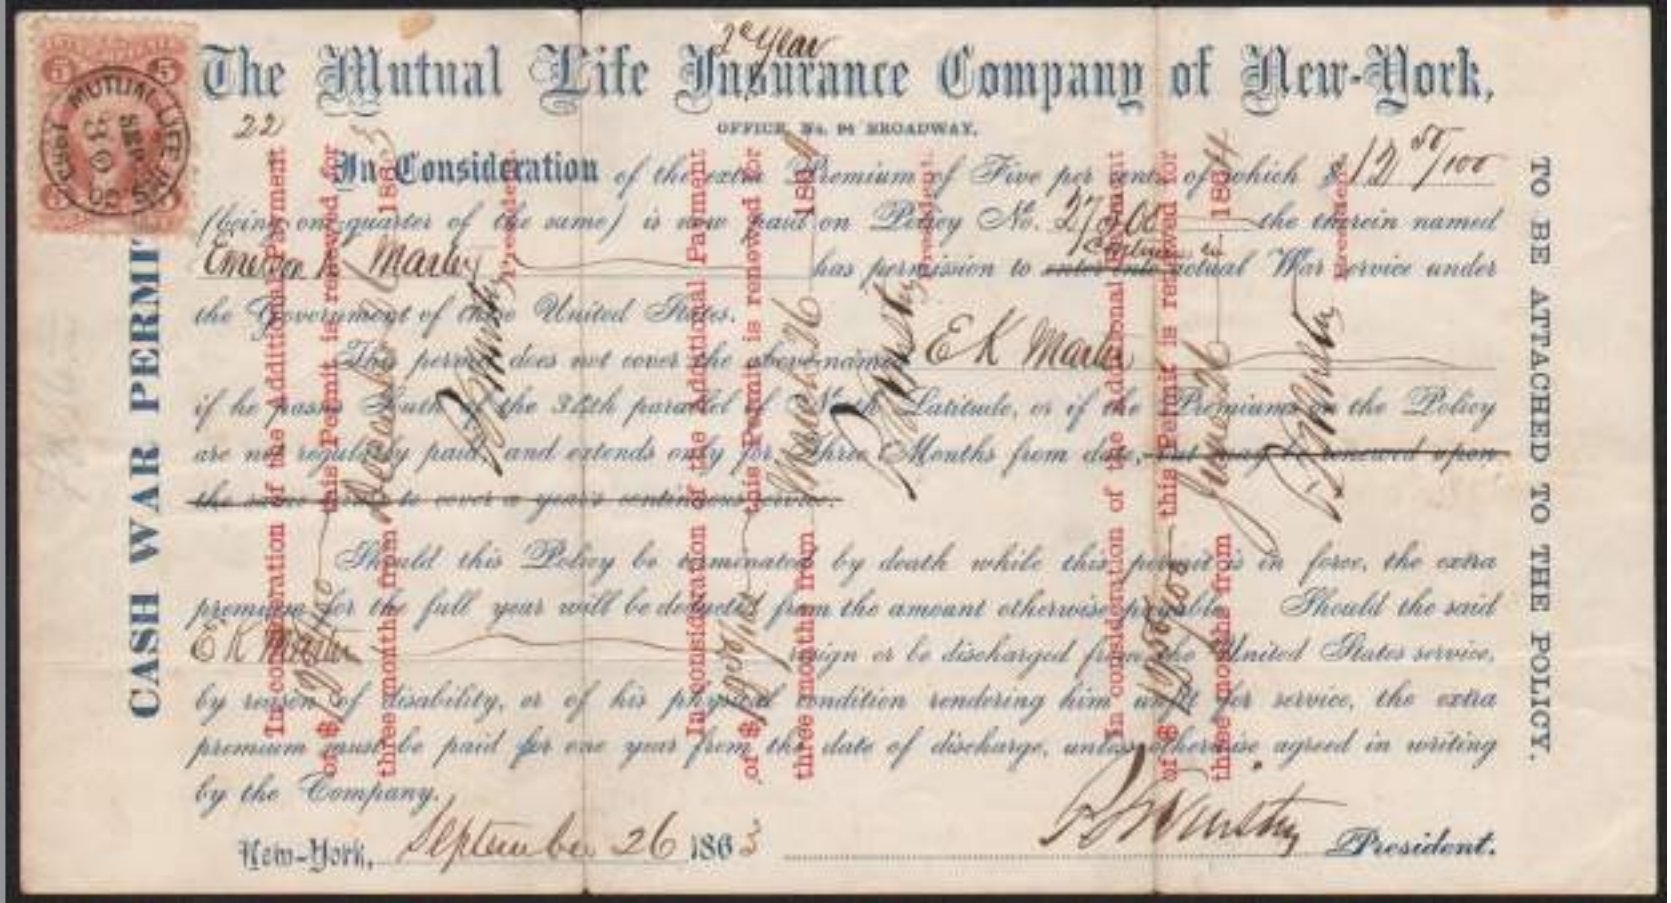 2e Year
The Mutual Life Insurance Company of New-York,
22
OFFICE, No. 94 BROADWAY,
In Consideration of the extra Premium of Five per cent. of which $12 50/100
(being one-quarter of the same) is now paid on Policy No. the therein named
has permission to enter into actual War service under
continue in
the Government of these United States.
This permit does not cover the above-named E K
if he passes South of the 34th parallel of North Latitude, or if the Premiums on the Policy
are not regularly paid, and extends only for three Months from date, but may be renewed upon
the same terms to cover a year's continuous service.
Should this Policy be terminated by death while this permit is in force, the extra
premium for the full year will be deducted from the amount otherwise payable. Should the said
E K resign or be discharged from the United States service,
by reason of disability, or of his physical condition rendering him unfit for service, the extra
premium must be paid for one year from the date of discharge, unless otherwise agreed in writing
by the Company.
New-York, September 26 1863 President.
CASH WAR PERMIT
TO BE ATTACHED TO THE POLICY.
In consideration of the Additional Payment
of $12 50/100 this Permit is renewed for
three months from December 26 1863
President.
In consideration of the Additional Payment
of $12 50/100 this Permit is renewed for
three months from March 26 1864
President.
In consideration of the Additional Payment
of $12 50/100 this Permit is renewed for
three months from June 26 1864
President.
5 5
MUTUAL LIFE INS. CO.
SEP